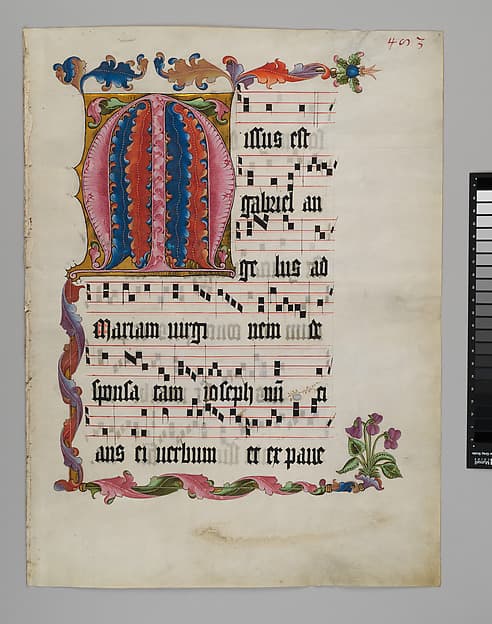 453
Missus est
gabriel an
gelus ad
Mariam virgi nem de
sponsa tam ioseph nū ti
ans ei verbum et ex pave